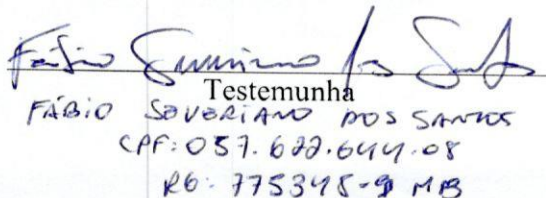 Fábio Severiano dos Santos
Testemunha
FÁBIO SEVERIANO DOS SANTOS
CPF: 057.622.644.08
RG: 775345-9 MB